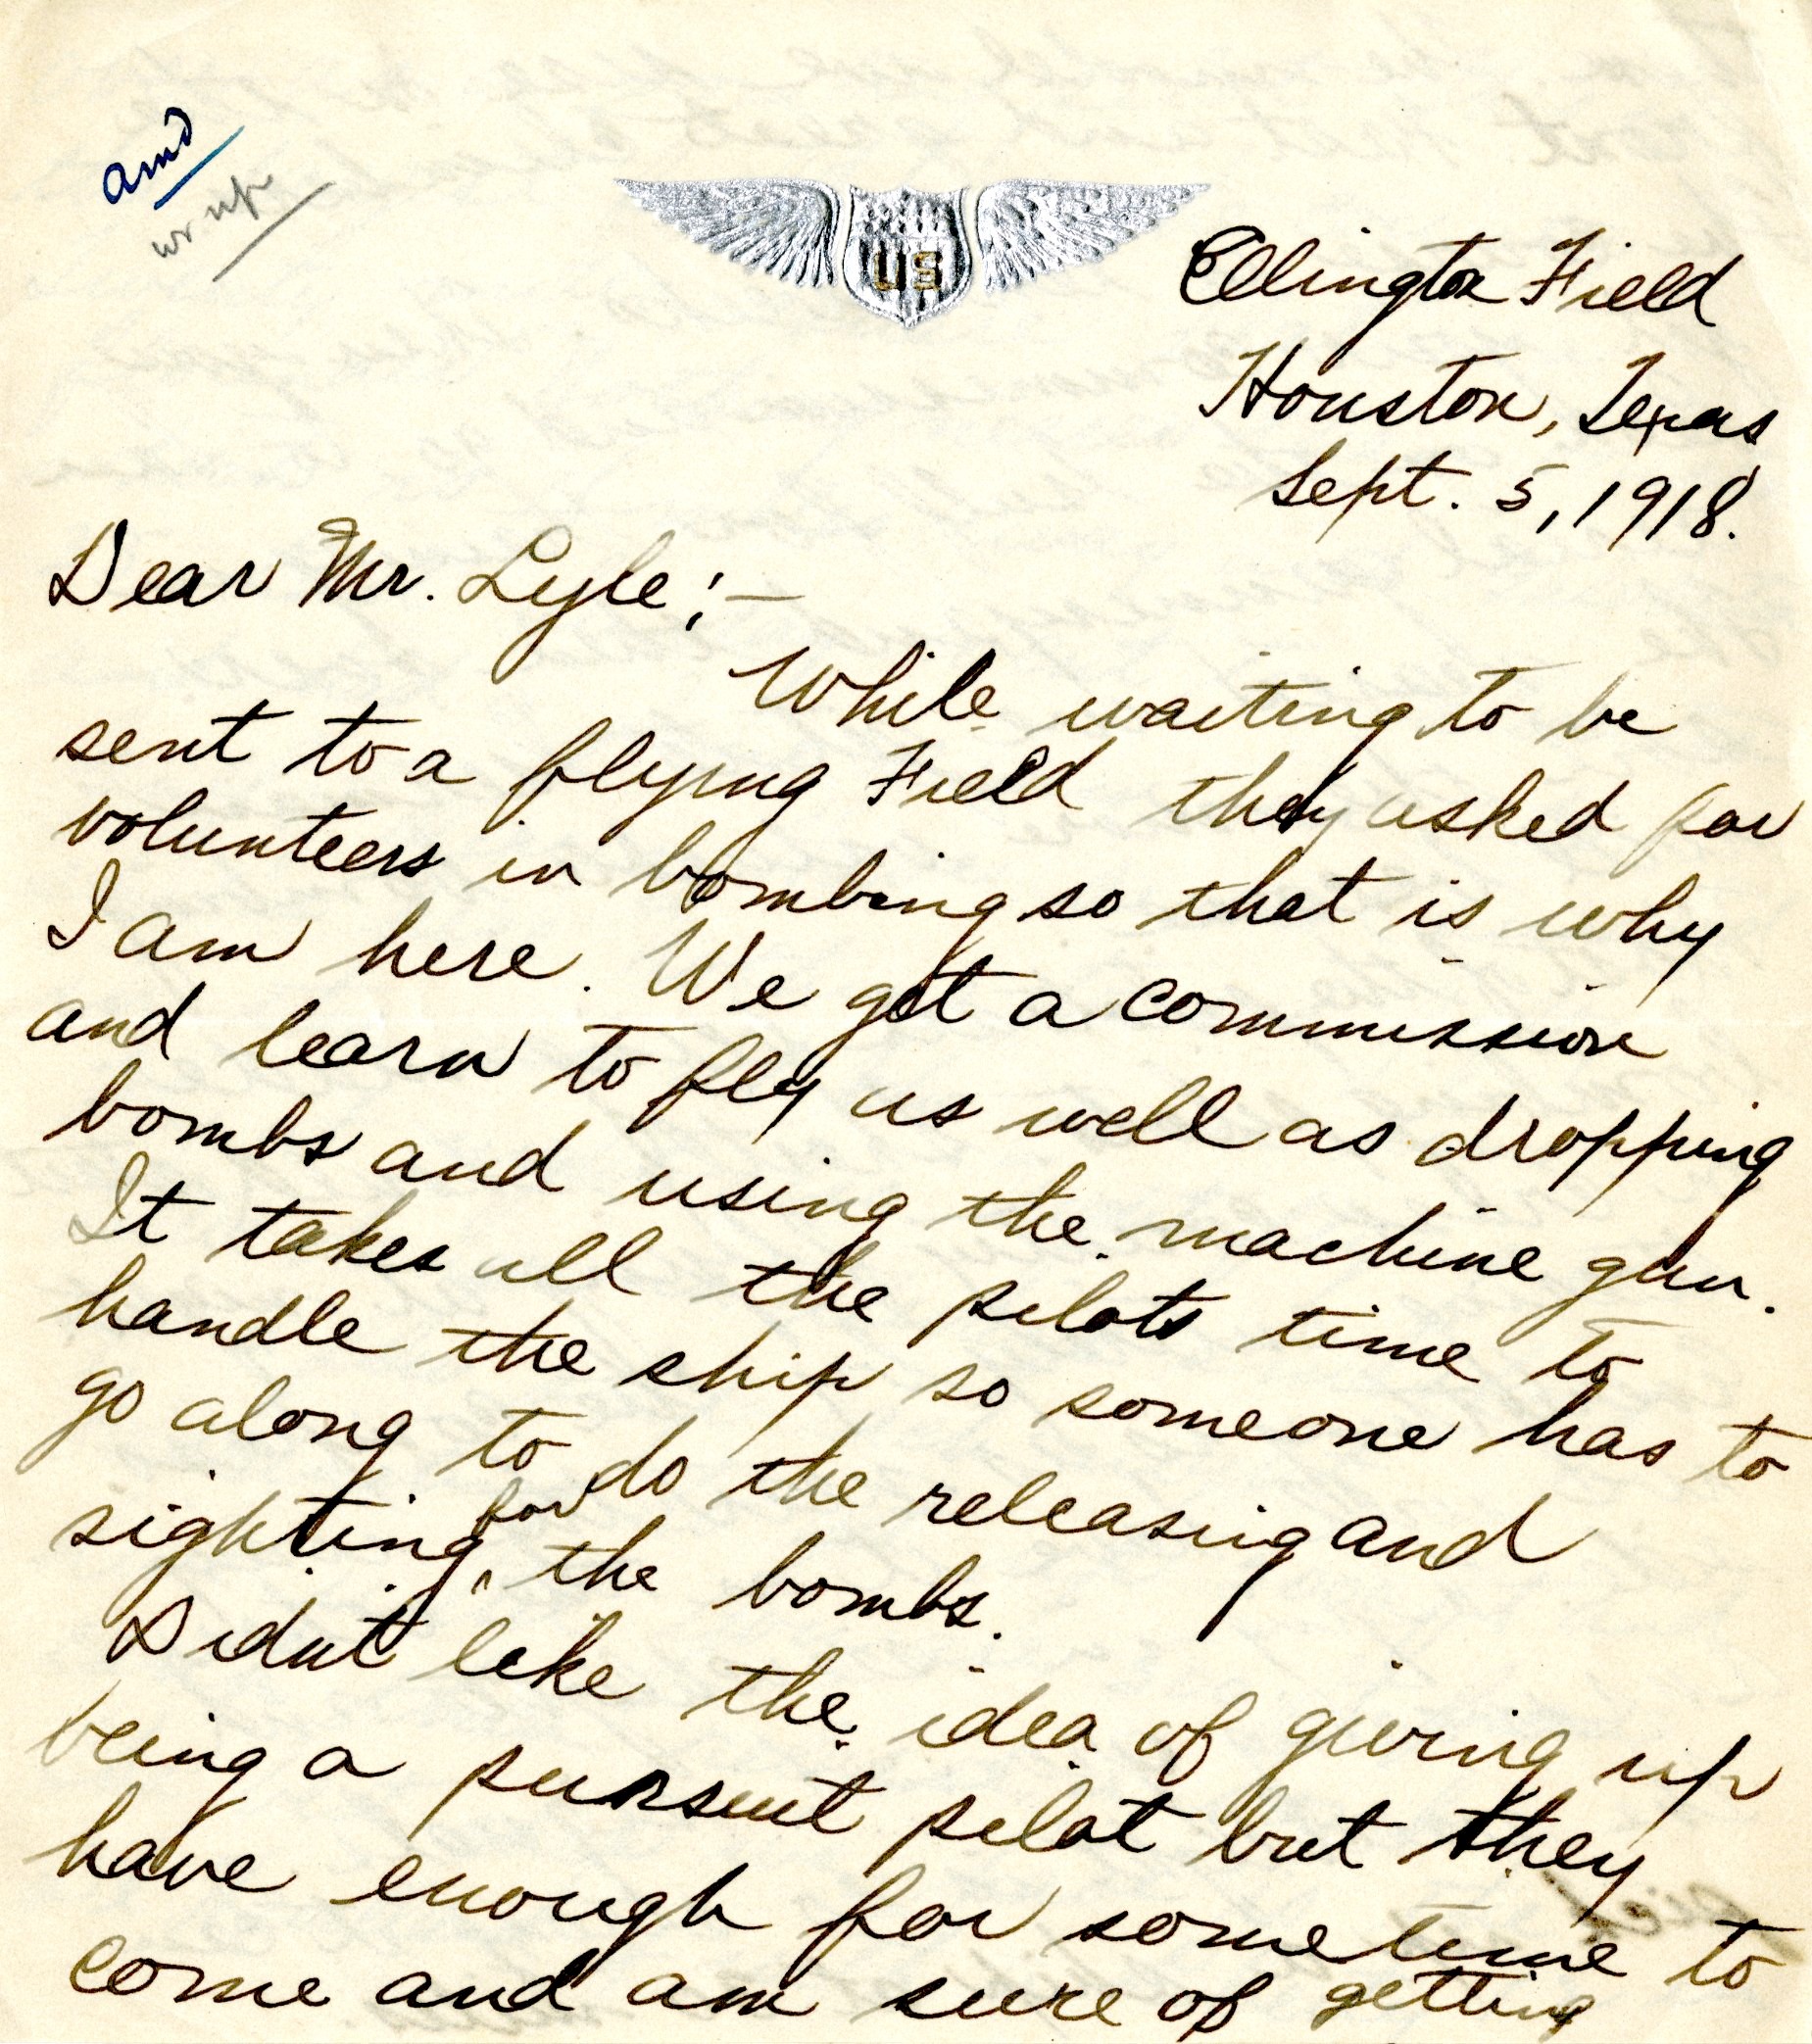 amd
wr up
US
Ellington Field
Houston, Texas
Sept. 5, 1918.
Dear Mr. Lyle:-
While waiting to be
sent to a flying Field they asked for
volunteers in bombing so that is why
I am here. We get a commission
and learn to fly as well as dropping
bombs and using the machine gun.
It takes all the pilots time to
handle the ship so someone has to
go along to do the releasing and
sighting for the bombs.
Didnt like the idea of giving up
being a pursuit pilot but they
have enough for some time to
come and am sure of getting